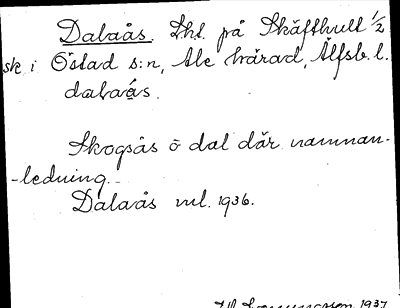 Dalaås. Tht. på Skäfthult 1/2
sk i Östad s:n, Ale härad, Älfsb. l.
dalaås.
Skogsås o dal där namnan-
-ledning.
Dalaås ml. 1936.
1937